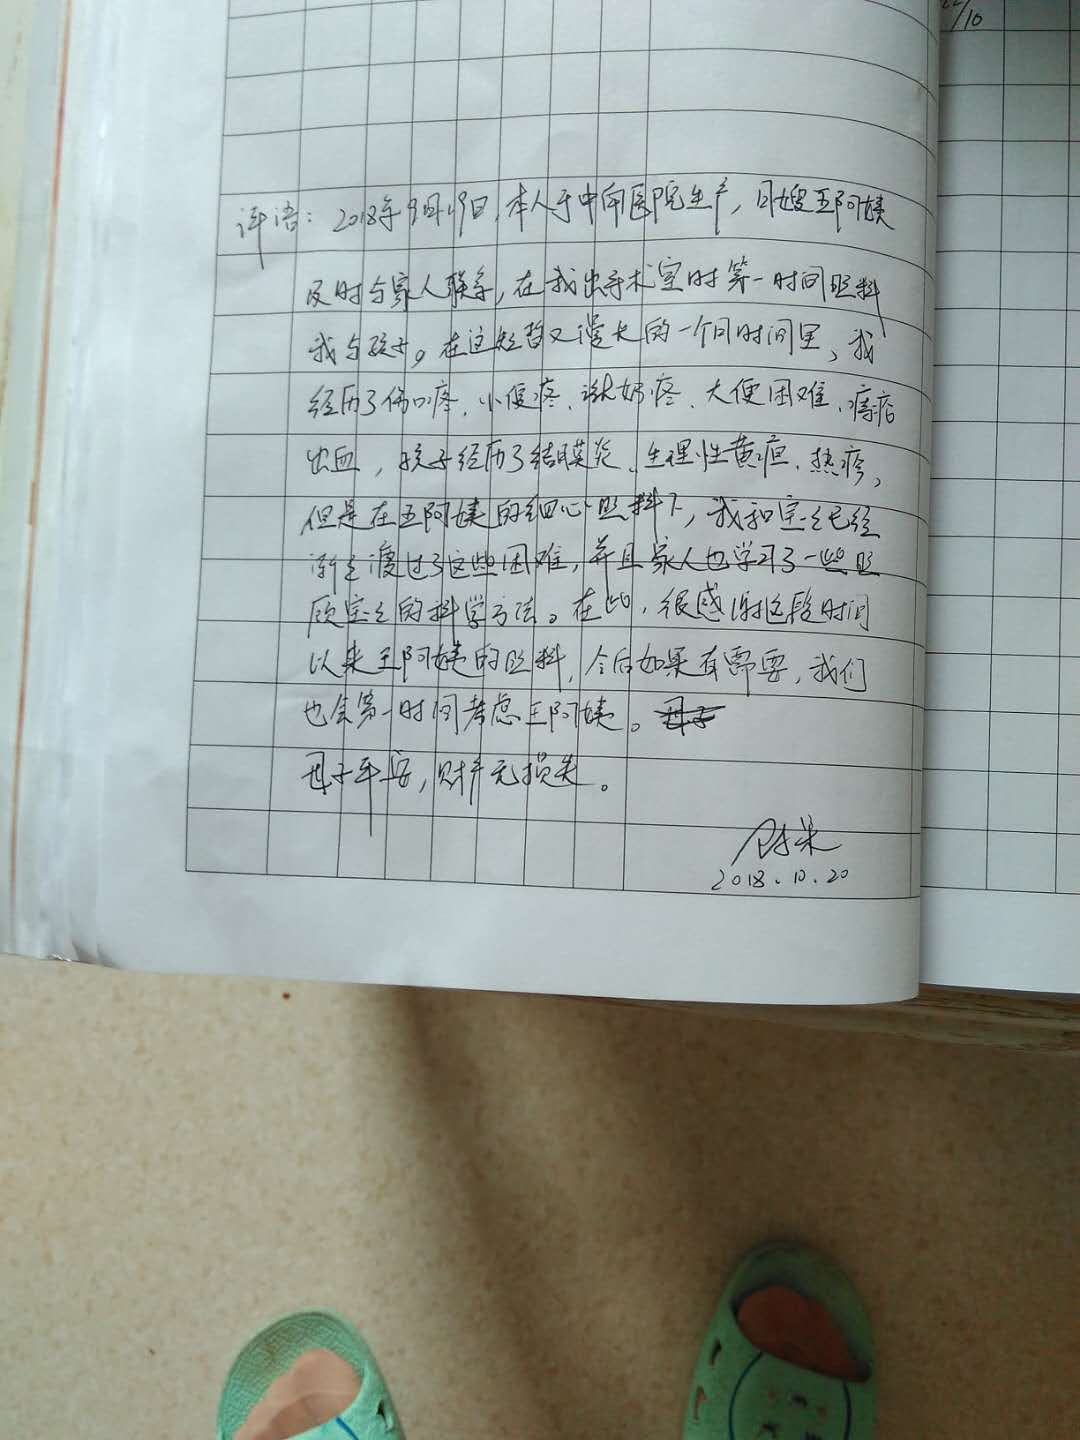 22/10
评语：2018年9月19日，本人于中向医院生产，月嫂王阿姨
及时与家人联系，在我出手术室时第一时间照料
我与孩子。在这短暂又漫长的一个月时间里，我
经历了伤口疼、小便疼、涨奶疼、大便困难、痔疮
出血，孩子经历了结膜炎、生理性黄疸、热疹，
但是在王阿姨的细心照料下，我和宝宝已经
渐渐渡过了这些困难，并且家人也学习了一些照
顾宝宝的科学方法。在此，很感谢这段时间
以来王阿姨的照料，今后如果有需要，我们
也会第一时间考虑王阿姨。
母子平安，财产无损失。
2018.10.20